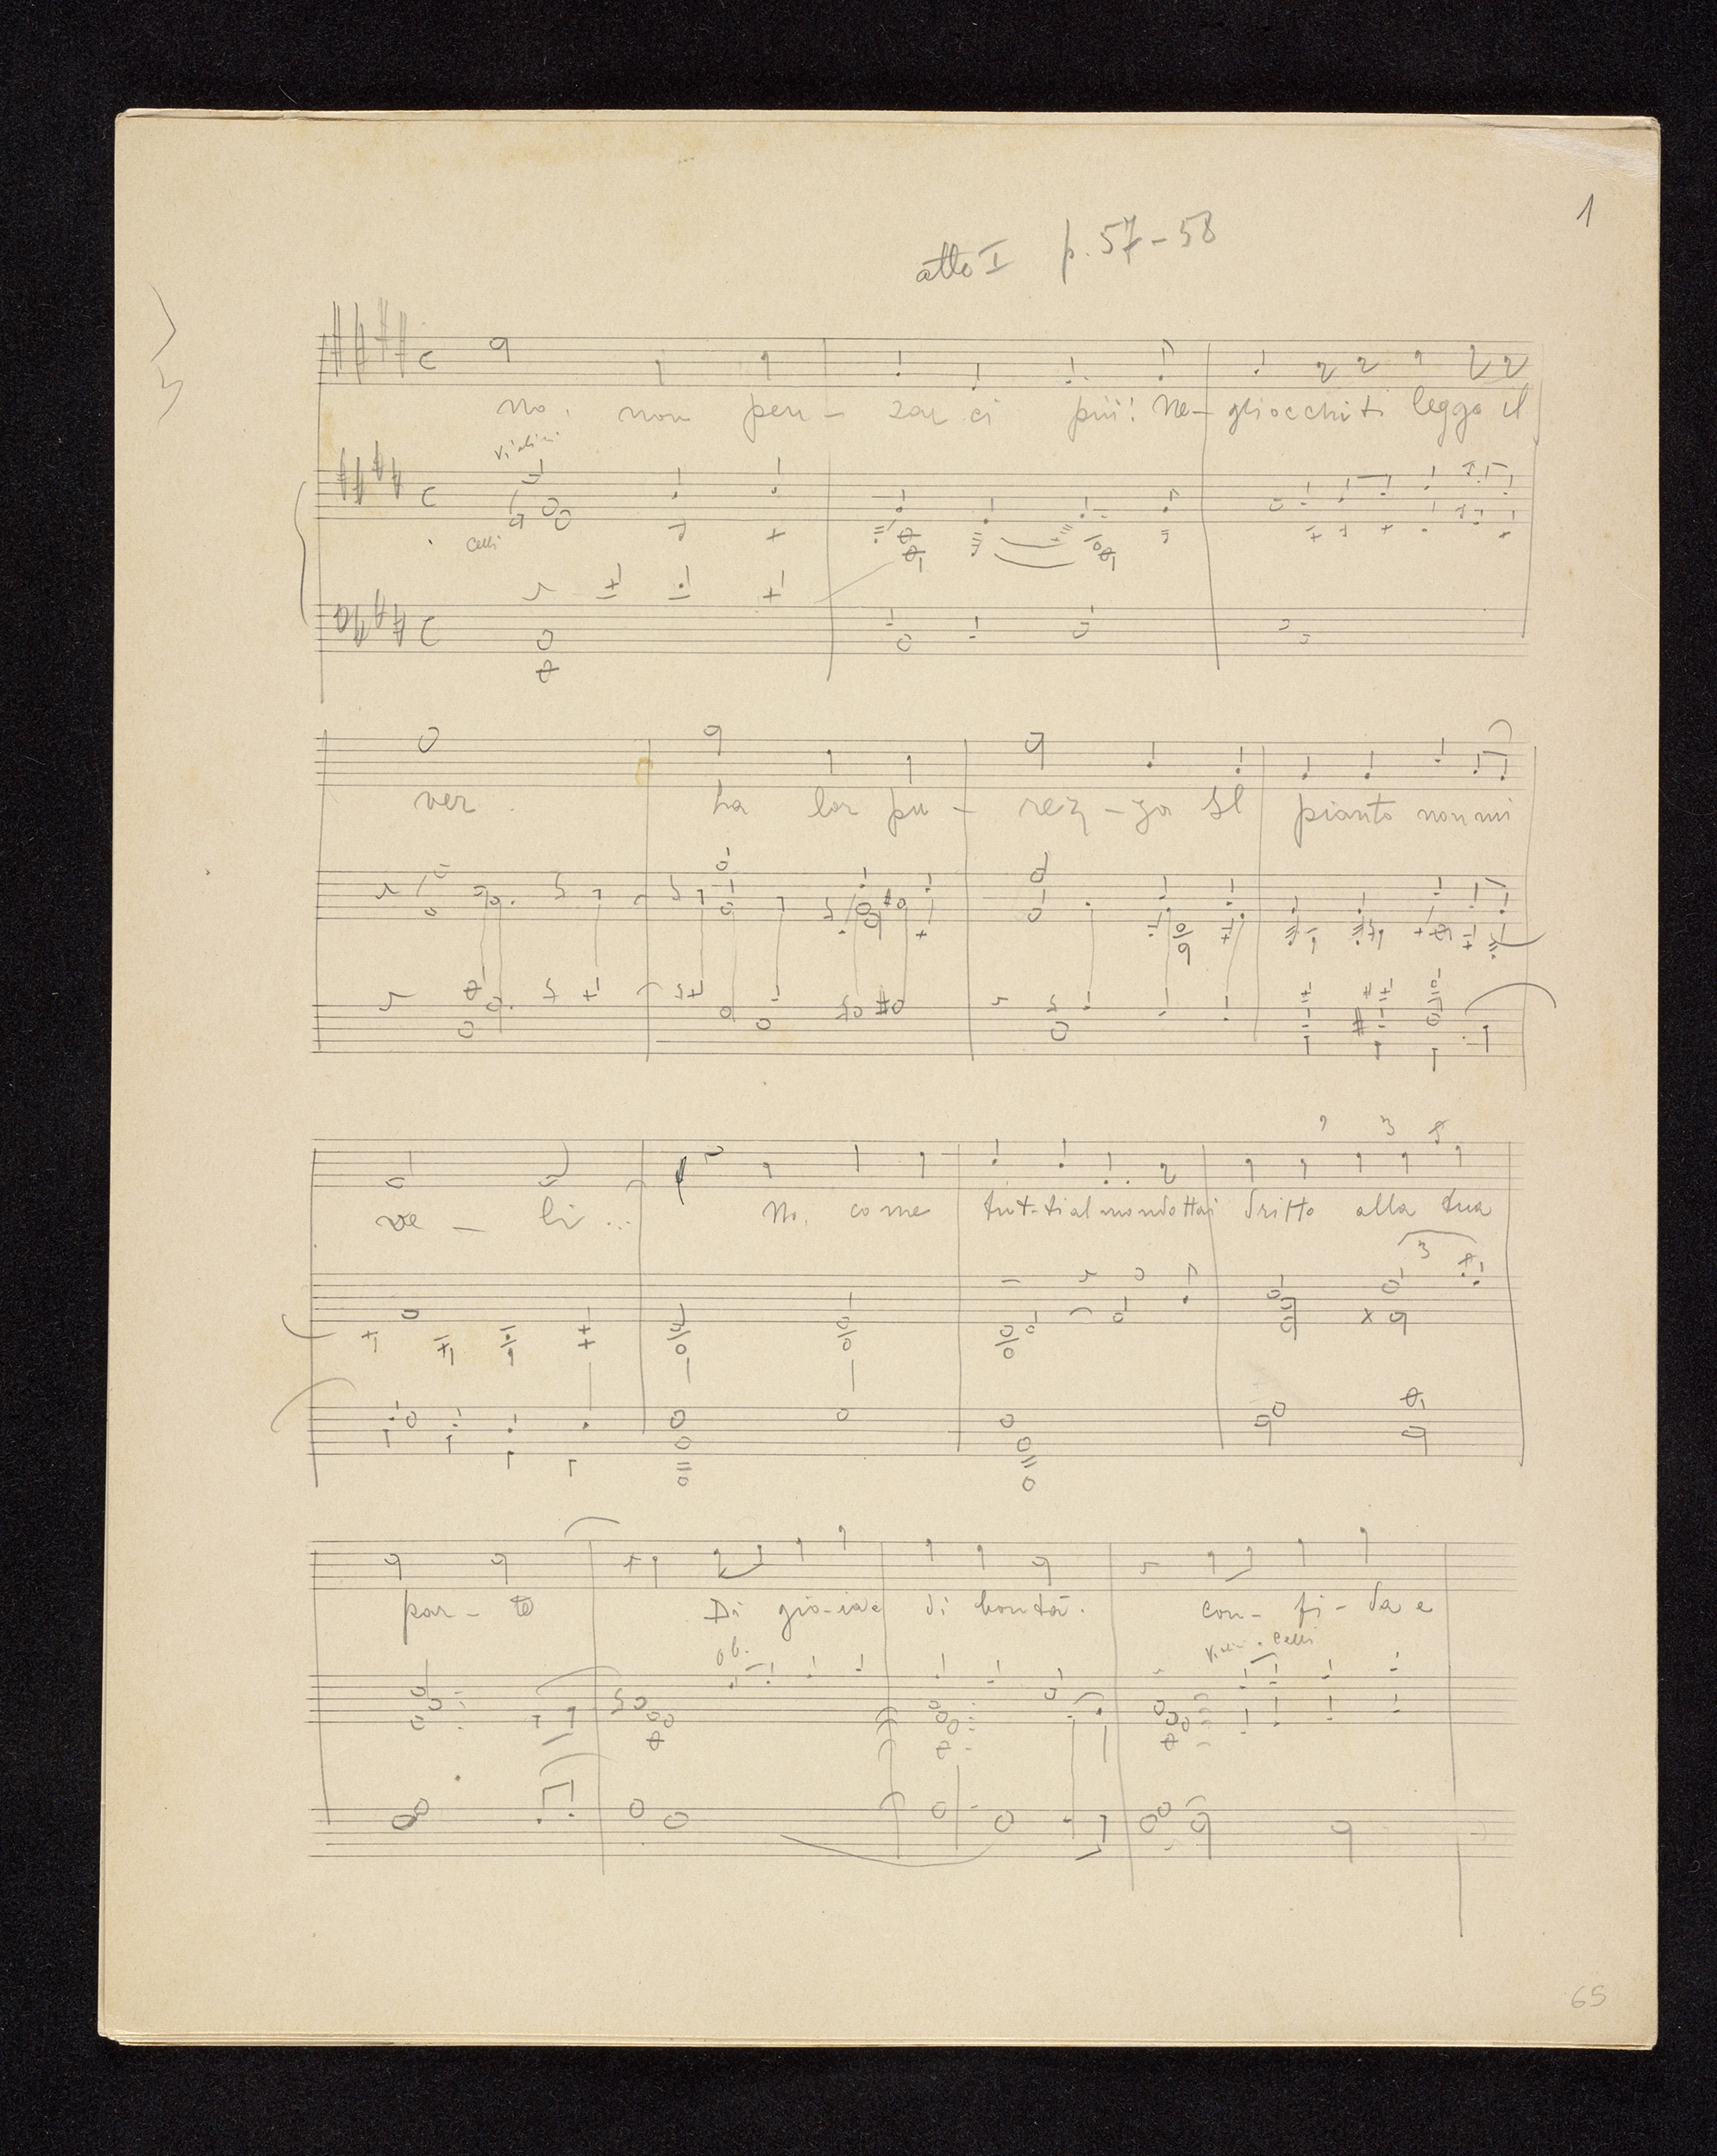 1
atto I p. 57-58
no, non pen- sar ci più! Ne- gli occhi ti leggo il
Violini
Celli
ver.
La lor pu- rez-za Il pianto non mi
ve- li...
No, come tut-ti al mondo Hai dritto alla tua
3
3
par- te
Di gio-ia e di bontà. Con- fi- da e
Ob.
Viol. Celli
65